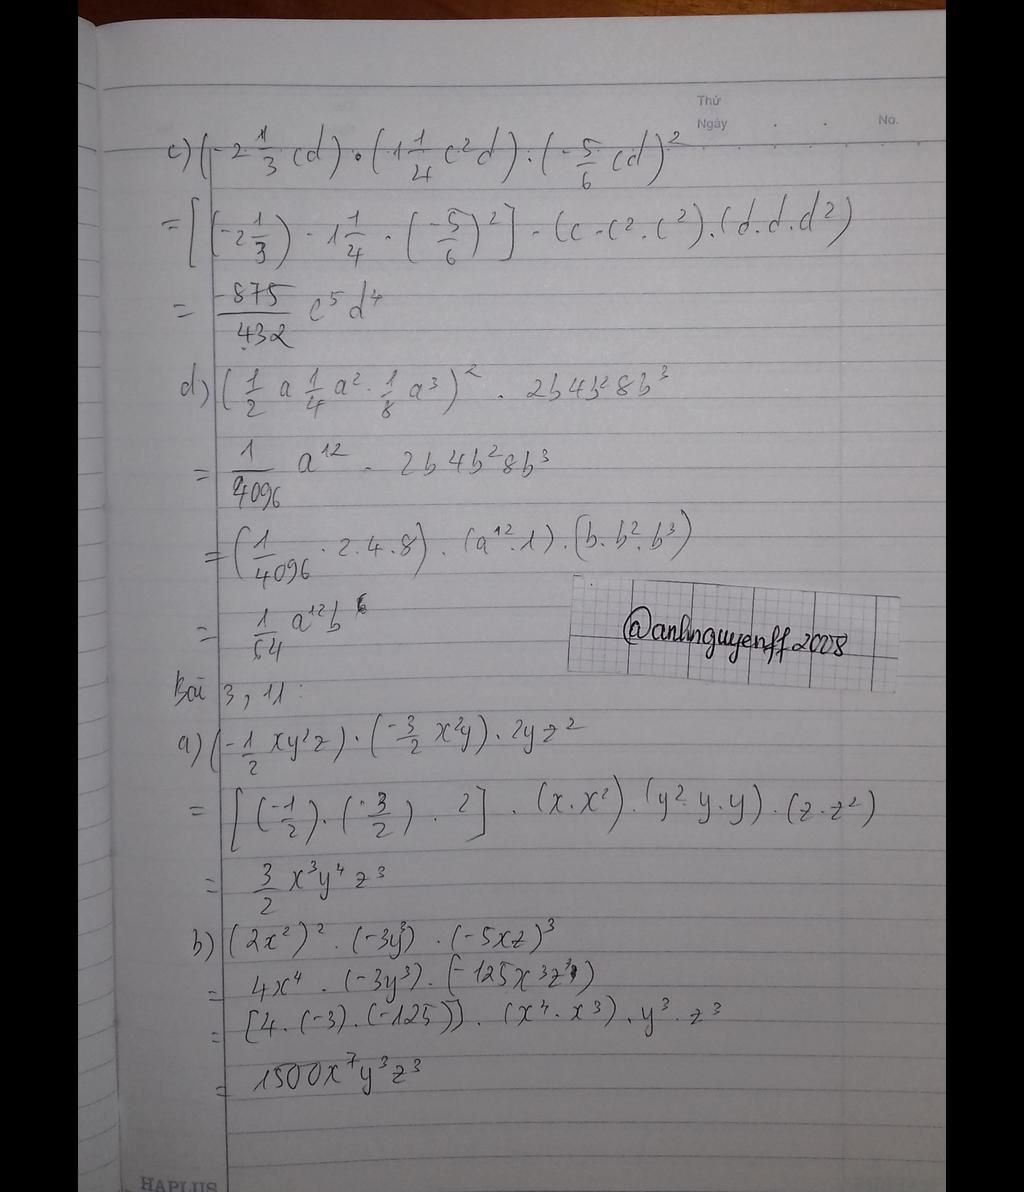 Thứ
Ngày . . No.
c) (-2 1/3 cd) . (1 1/4 c²d) . (-5/6 cd)²
= [(-2 1/3) . 1 1/4 . (-5/6)²] . (c . c² . c²) . (d . d . d²)
= -875/432 c⁵d⁴
d) (1/2 a 1/4 a² . 1/8 a³)² . 2b4b²8b³
= 1/4096 a¹² . 2b4b²8b³
= (1/4096 . 2.4.8) . (a¹².1) . (b.b².b³)
= 1/64 a¹²b⁶
@anhnguyenff2008
Bài 3, 11:
a) (-1/2 xy²z) . (-3/2 x²y) . 2yz²
= [(-1/2) . (-3/2) . 2] . (x.x²) . (y².y.y) . (z.z²)
= 3/2 x³y⁴z³
b) (2x²)² . (-3y³) . (-5xz)³
= 4x⁴ . (-3y³) . (-125x³z³)
= [4.(-3).(-125)] . (x⁴.x³) . y³ . z³
= 1500x⁷y³z³
HAPLUS